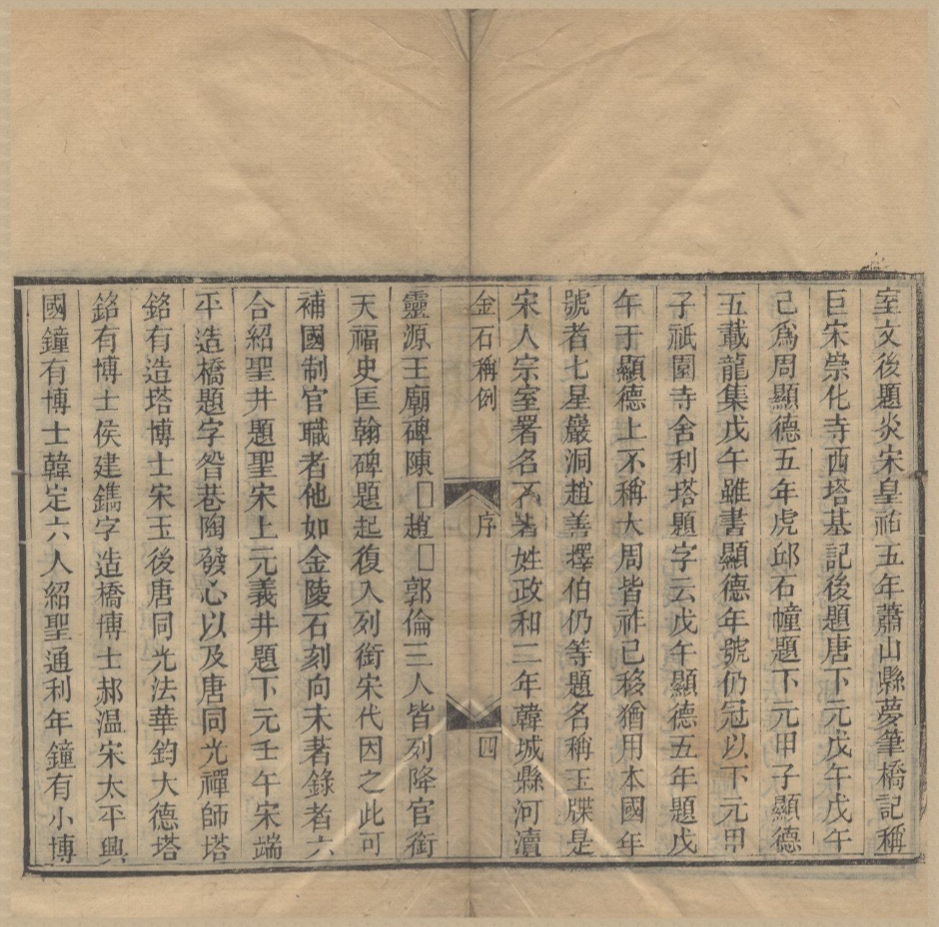 室文後題炎宋皇祐五年蕭山縣夢筆橋記稱
巨宋崇化寺西塔基記後題唐下元戊午戊午
己爲周顯德五年虎邱石幢題下元甲子顯德
五載龍集戊午雖書顯德年號仍冠以下元甲
子祇園寺舍利塔題字云戊午顯德五年題戊
午于顯德上不稱大周皆祚已移猶用本國年
號者七星巖洞趙善擇伯仍等題名稱玉牒是
宋人宗室署名不著姓政和二年韓城縣河瀆
金石稱例
序
四
靈源王廟碑陳□趙□郭倫三人皆列降官銜
天福史匡翰碑題起復入列銜宋代因之此可
補國制官職者他如金陵石刻向未著錄者六
合紹聖井題聖宋上元義井題下元壬午宋端
平造橋題字昝巷陶發心以及唐同光禪師塔
銘有造塔博士宋玉後唐同光法華鈞大德塔
銘有博士侯建鐫字造橋博士郝溫宋太平興
國鐘有博士韓定六人紹聖通利年鐘有小博